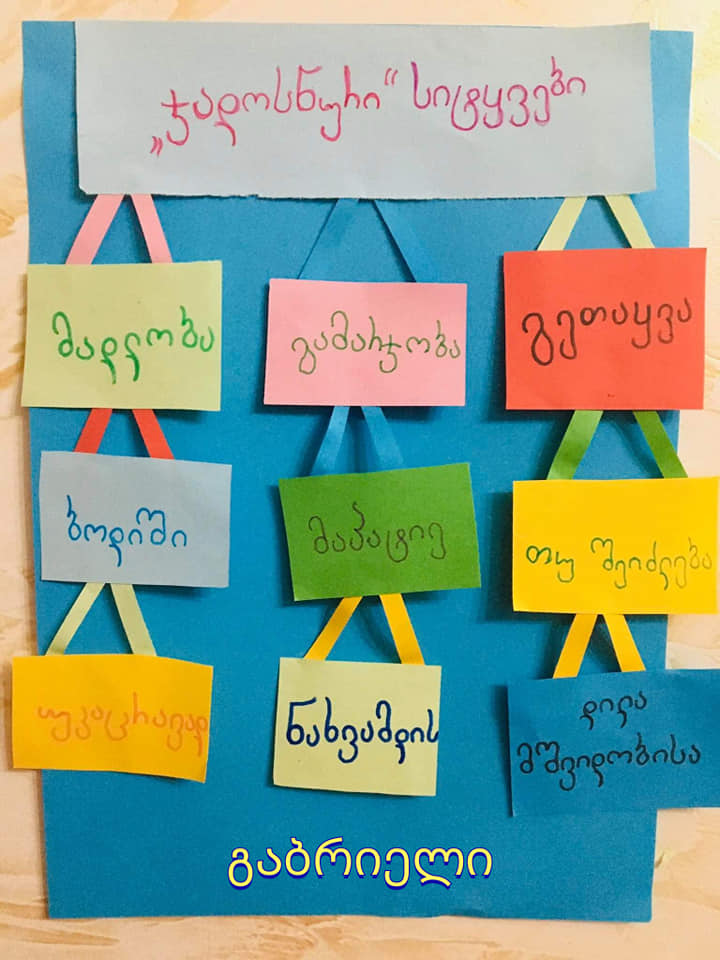 „ჯადოსნური“ სიტყვები
მადლობა
გამარჯობა
გეთაყვა
ბოდიში
მაპატიე
თუ შეიძლება
უკაცრავად
ნახვამდის
დილა
მშვიდობისა
გაბრიელი